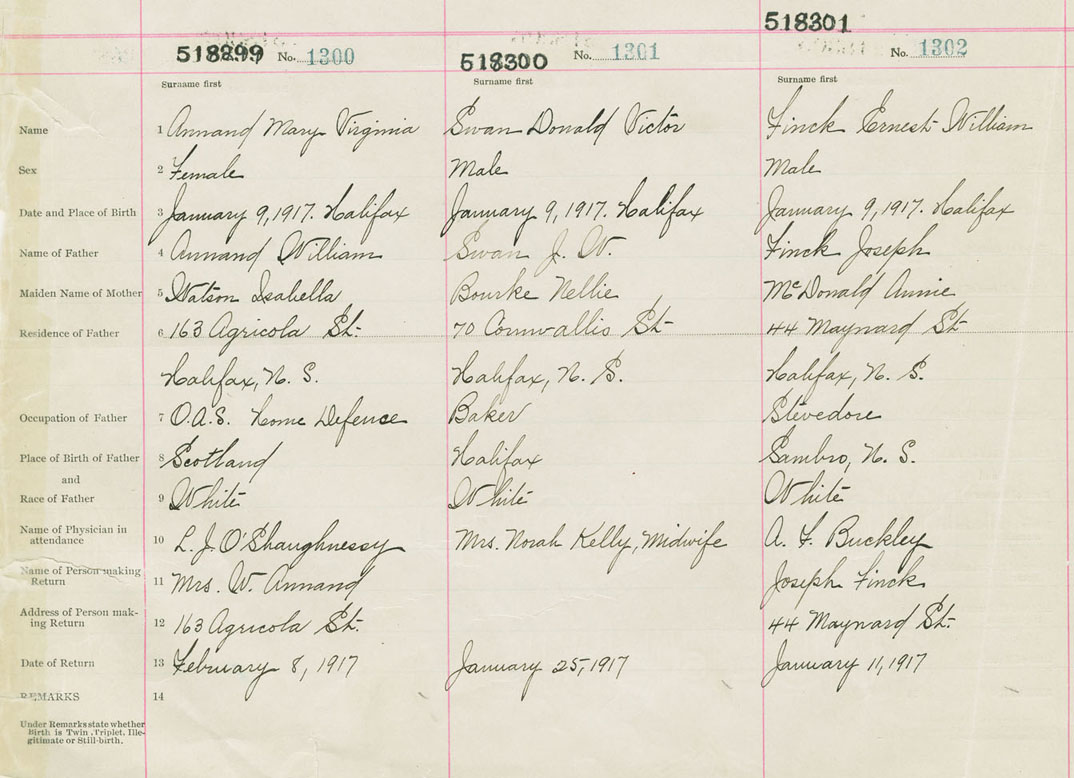 518301
518299 No. 1300 518300 No. 1301 No. 1302
Surname first Surname first Surname first
Name 1 Annand Mary Virginia Swan Donald Victor Finck Ernest William
Sex 2 Female Male Male
Date and Place of Birth 3 January 9, 1917. Halifax January 9, 1917. Halifax January 9, 1917. Halifax
Name of Father 4 Annand William Swan J. W. Finck Joseph
Maiden Name of Mother 5 Watson Isabella Bourke Nellie McDonald Annie
Residence of Father 6 163 Agricola St. 70 Cornwallis St 44 Maynard St
Halifax, N. S. Halifax, N. S. Halifax, N. S.
Occupation of Father 7 O.A.S. Home Defence Baker Stevedore
Place of Birth of Father 8 Scotland Halifax Sambro, N. S.
and
Race of Father 9 White White White
Name of Physician in
attendance 10 L. J. O'Shaughnessy Mrs. Norah Kelly, Midwife A. F. Buckley
Name of Person making
Return 11 Mrs. W. Annand Joseph Finck
Address of Person mak-
ing Return 12 163 Agricola St. 44 Maynard St.
Date of Return 13 February 8, 1917 January 25, 1917 January 11, 1917
REMARKS 14
Under Remarks state whether
Birth is Twin, Triplet, Ille-
gitimate or Still-birth.